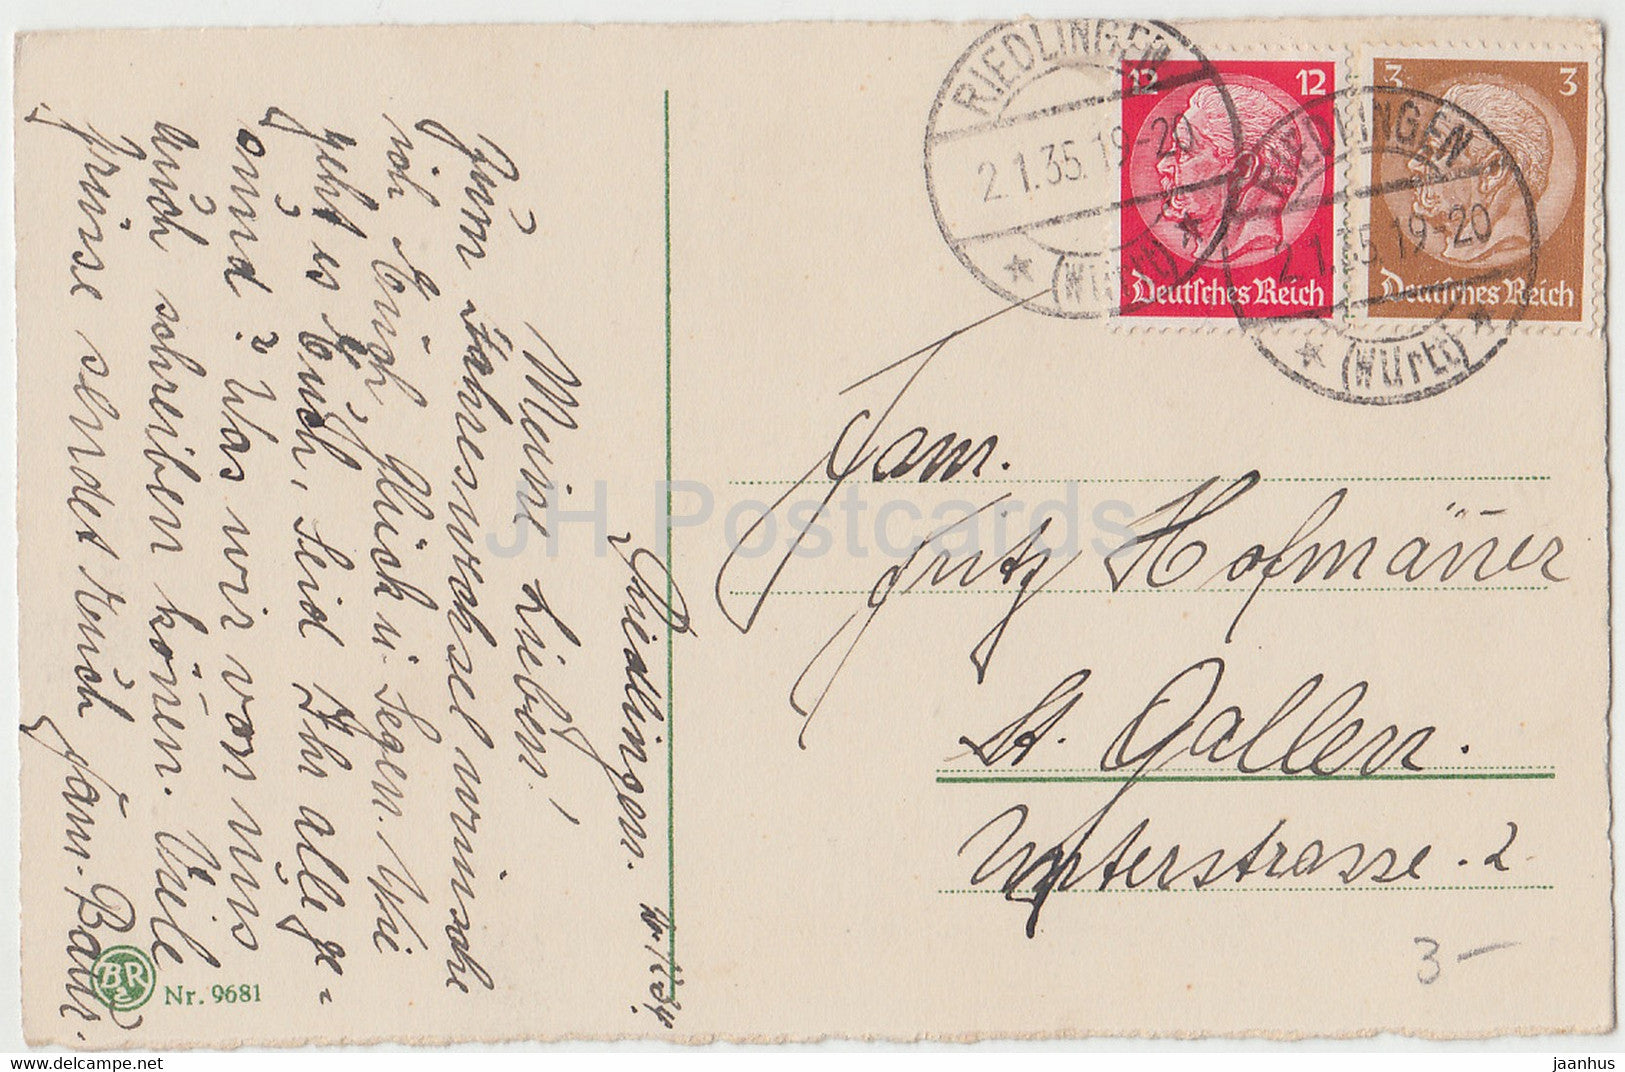 Riedlingen. 2./1.34
Meine Lieben!
Zum Jahreswechsel wünsche
ich Euch Glück u. Segen. Wie
geht es Euch, seid Ihr alle ge=
sund? Was wir von uns
auch schreiben könen. Viele
Grüsse sendet Euch Fam. Baur.
BR
Nr. 9681
RIEDLINGEN
2.1.35.19-20
(Württ)
12 12
Deutsches Reich
3 3
Deutsches Reich
RIEDLINGEN
2.1.35.19-20
(Württ)
Fam.
Fritz Hofmänner
St. Gallen.
strasse. 2.
3-
JH Postcards
www.delcampe.net
jaanhus